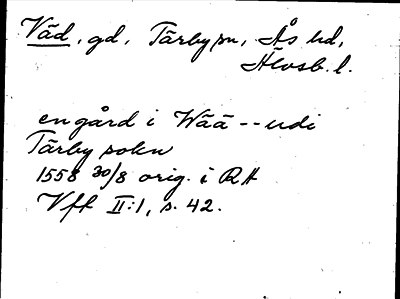 Väd, gd, Tärby sn, Ås hd,
Älvsb. l.
en gård i Wää -- udi
Tärby sokn
1558 30/8 orig. i RA
Vff II:1, s. 42.